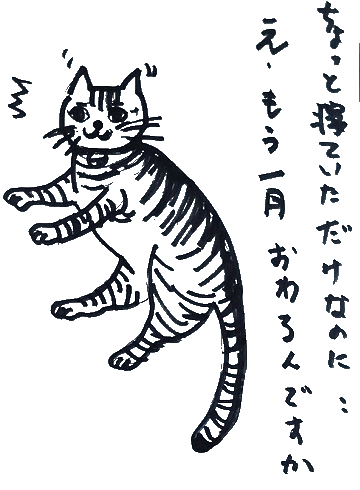 ちょっと寝ていただけなのに‥
え、もう一月 おわるんですか